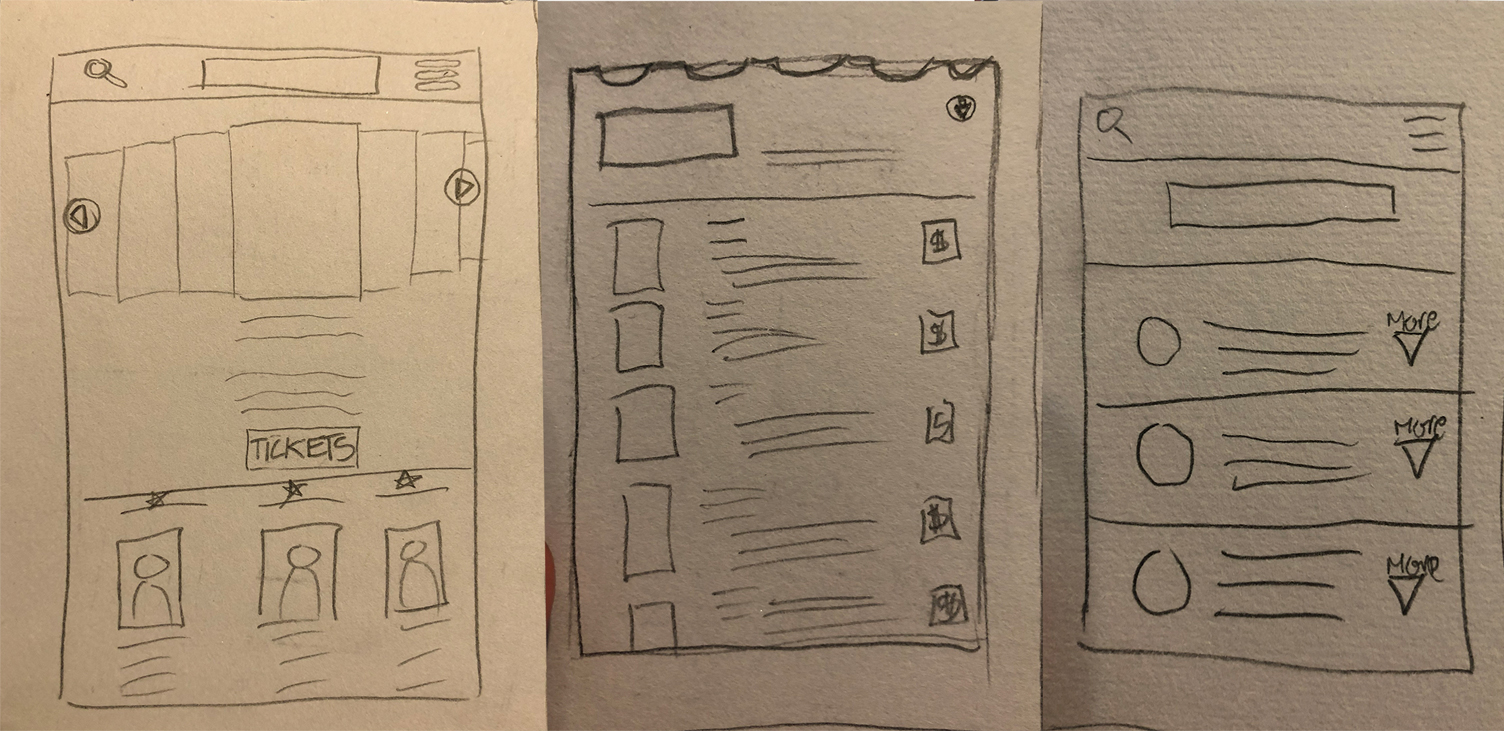 TICKETS
$
$
$
$
$
More
More
More